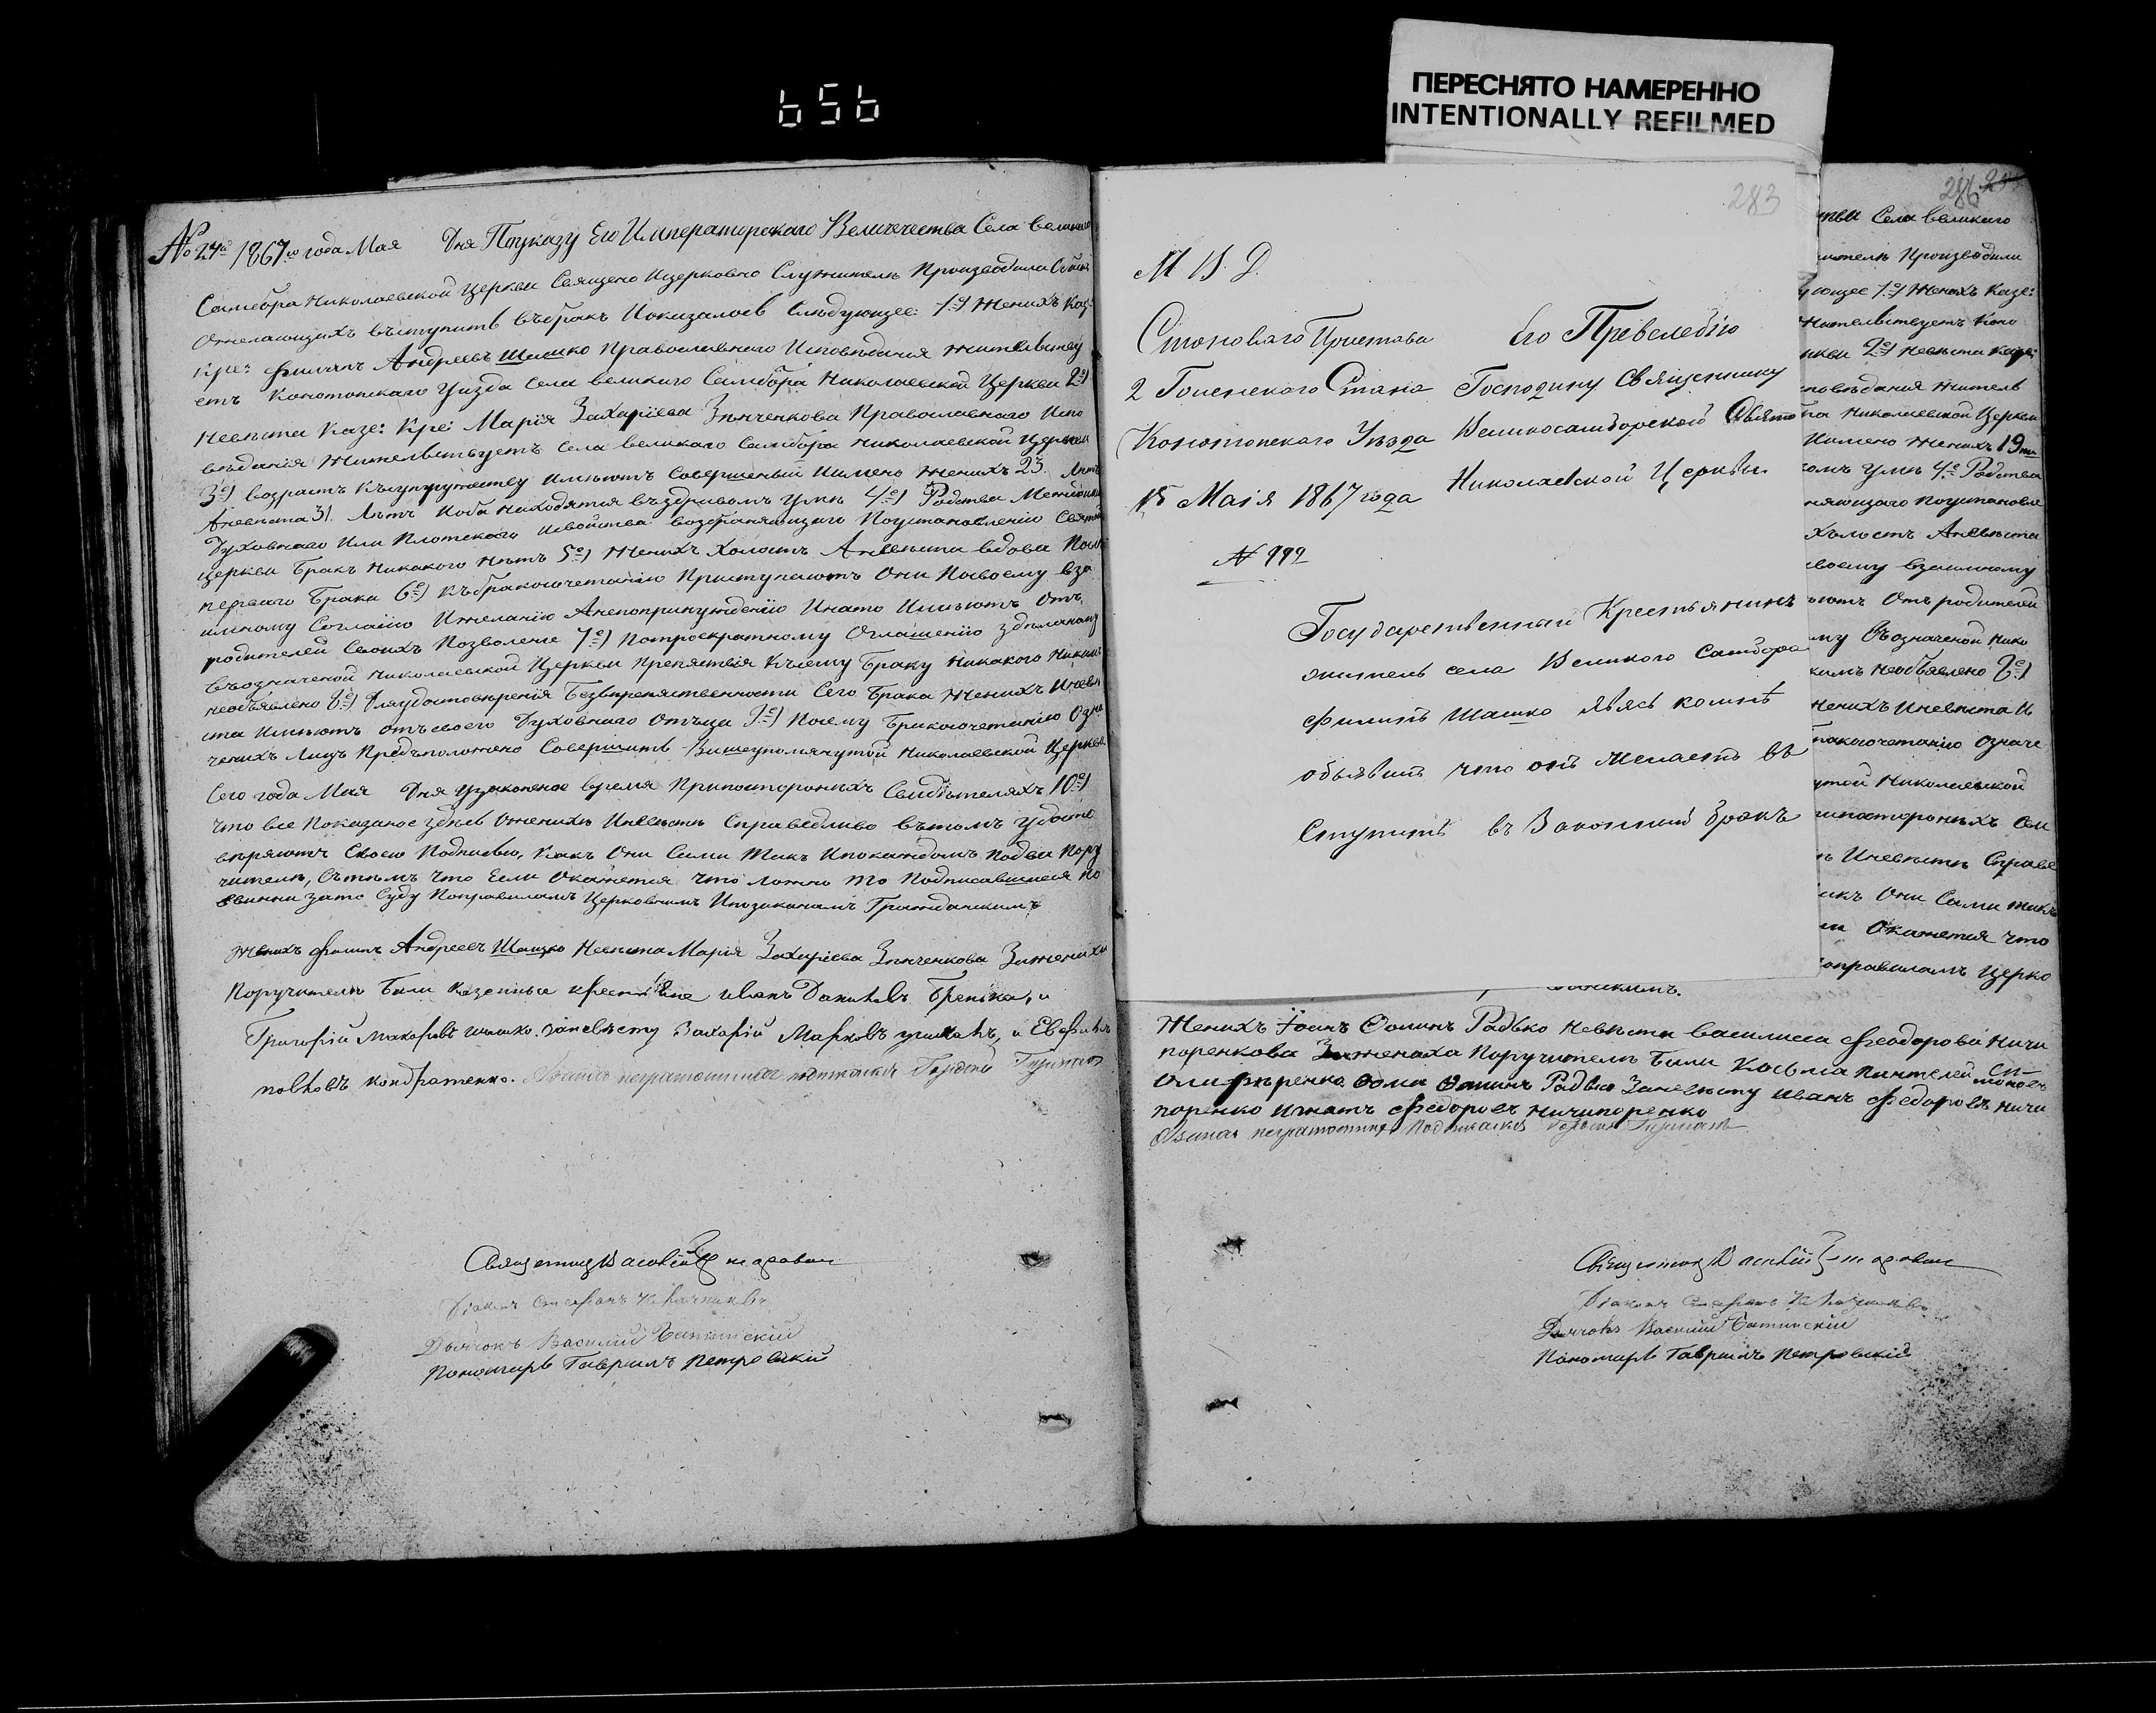 656
ПЕРЕСНЯТО НАМЕРЕННО
INTENTIONALLY REFILMED
№ 24й 1867го года Мая Дня Поуказу Его Императорскаго Величества Села великаго
Самбора Николаевской Церкви Священо Ицерковно Служители Производили Обыскъ
Ожелающихъ вступить въбракъ Ноказалось Слѣдующее: 1е) Женихъ Каз:
Кре: Филипъ Андреевъ Шашко Православнаго Исповѣдания жительству
етъ Конотопскаго Уизда Села великаго Самбора Николаевской Церкви 2е)
Невѣста Казе: Кре: Марія Захаріева Зѣнченкова Православнаго Испо
вѣданія Жительствуетъ Села великаго Самбора Николаевской Церкви
3е) возрастъ Късупружеству Имѣютъ Совершеный Имено Женихъ 23. Лѣтъ
Аневѣста 31. Лѣтъ Иоба Находятся въздравомъ Умѣ 4е) Родства Межъоними
Духовнаго Или Плотскаго Исвойства возбраняющаго Поустановленію Святой
Церкви Бракъ Никакого Нѣтъ 5е) Женихъ Холостъ Аневѣста вдова Посл
перваго Брака 6е) Къбракосочетанію Приступаютъ Они Посвоему вза
имному Согласію Ижеланію Анепопринужденію Инато Имѣютъ Отъ
родителей Своихъ Позволение 7е) Потроекратному Оглашенію Здѣланому
въозначеной Николаевской Церкви Препятствія Късему Браку Никакого Никимъ
необъявлено 8е) Дляудостовѣренія Безпрепятственности Сего Брака Женихъ Иневѣ
ста Имѣютъ отъсвоего Духовнаго Отъца 9е) Посему Бракосочетанію Озна
ченихъ Лицъ Предъположено Совершить Вишеупомянутой Николаевской Церкви
Сего года Мая Дня узаконеное время Припосторонихъ Свидѣтеляхъ 10е)
Что все Показаное здѣсь Оженихѣ Иневѣсть Справедливо вътомъ удосто
вѣряютъ Своею Подписью, Какъ Они Сами Такъ Ипокаждомъ Подва Пору
чителя, Сътѣмъ Что Если Окажется что Ложно то Подписавшиеся По
винни зато Суду Поправиламъ Церковнымъ Ипозаконамъ Гражданскимъ
Женихъ Филипъ Андреевъ Шашко Невѣста Марія Захаріева Зѣнченкова Зажениха
Поручители Били Казенные крестьяне иванъ Даниловъ Бренька, и
Григорій Макаровъ шашко. заневѣсту Захарій Марковъ, и
повловъ кондратенко. неграмотныхъ
Священникъ Василій
Діаконъ Стефанъ
Дьячокъ Василій
Пономаръ Гавриилъ Петровскій
283
М. В. Д.
Становаго Пристава
2 Стана
Конотопскаго Уѣзда
15 Маія 1867 года
№ 992
Его Превелебію
Господину Священнику
Великосамборской Свято
Николаевской Церкви
Государственный Крестьянинъ
житель села Великого Самбора
Филипъ Шашко явясь комнѣ
объявилъ что онъ желаетъ въ
ступить въ Законный бракъ
286
Села великаго
Производили
1е) Женихъ Казе:
Жительствуетъ Коно
2е) Невѣста Казе:
Исповѣдания житель
Николаевской Церкви
Имено Женихъ 19ти
Умѣ 4е) Родства
Поустановле
Холостъ Аневѣста
своему взаимному
Отъ родителей
въозначеной Нико
необъявлено 8е)
Женихъ Иневѣста И
Означе
Николаевской
Сви
Иневѣсть Справе
Они Сами такъ
Окажется что
Поправиламъ Церко
Женихъ Іоанъ Фоминъ Радько Невѣста василиса Феодорова Ничи
поренкова Зажениха Поручители Били Косьма Пантелеймоновъ
Фома Фоминъ Радько Заневѣсту иванъ Федоровъ ничи
поренко игнатъ Федоровъ ничипоренко
неграмотныхъ Подписался
Священникъ Василій
Діаконъ Стефанъ
Дячокъ Василій
Пономаръ Гавриилъ Петровскій